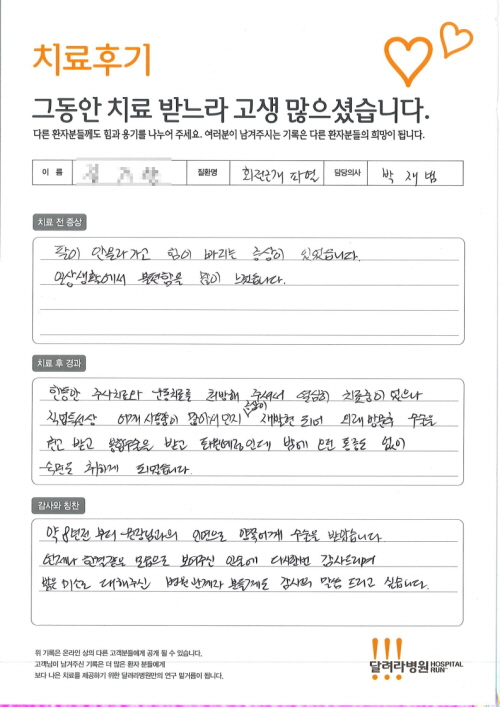 치료후기
그동안 치료 받느라 고생 많으셨습니다.
다른 환자분들께도 힘과 용기를 나누어 주세요. 여러분이 남겨주시는 기록은 다른 환자분들의 희망이 됩니다.
이 름 질환명 회전근개 파열 담당의사 박 재 범
치료 전 증상
팔이 안올라가고 힘이 빠지는 증상이 있었습니다.
일상생활에서 불편함을 많이 느꼈습니다.
치료 후 경과
한동안 주사치료와 운동치료를 처방해 주셔서 열심히 치료중이 었으나
직업특성상 어깨 사용량이 많아서인지 증상이 재발현 되어
받고 봉합수술을 받고 퇴원예정인데 밤에 오던 통증도 없이
숙면도 취하게 되었습니다.
감사와 칭찬
약 8년전 부터 원장님과의 인연으로 양쪽어깨 수술을 받았습니다
언제나 한결같은 모습으로 보여주신 인술에 다시한번 감사드리며
밝은 미소로 대해주신 병원 관계자 분들께도 감사의 말씀 드리고 싶습니다.
위 기록은 온라인 상의 다른 고객분들에게 공개 될 수 있습니다.
고객님이 남겨주신 기록은 더 많은 환자 분들에게
보다 나은 치료를 제공하기 위한 달려라병원만의 연구 밑거름이 됩니다.
달려라병원 HOSPITAL RUN